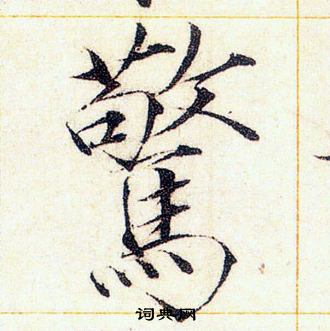 驚
词典网